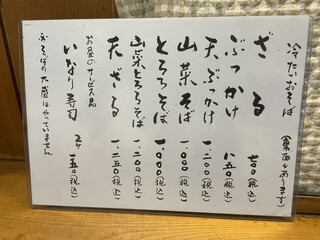 冷たいおそば (裏面もあります)
ざる 七〇〇(税込)
ぶっかけ 八五〇(税込)
天ぶっかけ 一、二〇〇(税込)
山菜そば 一、〇〇〇(税込)
とろろそば 一、〇〇〇(税込)
山菜とろろそば 一、二五〇(税込)
天ざる 一、二五〇(税込)
お昼のサービス品
いなり寿司 2ヶ 一五〇(税込)
おそばの大盛はやっていません